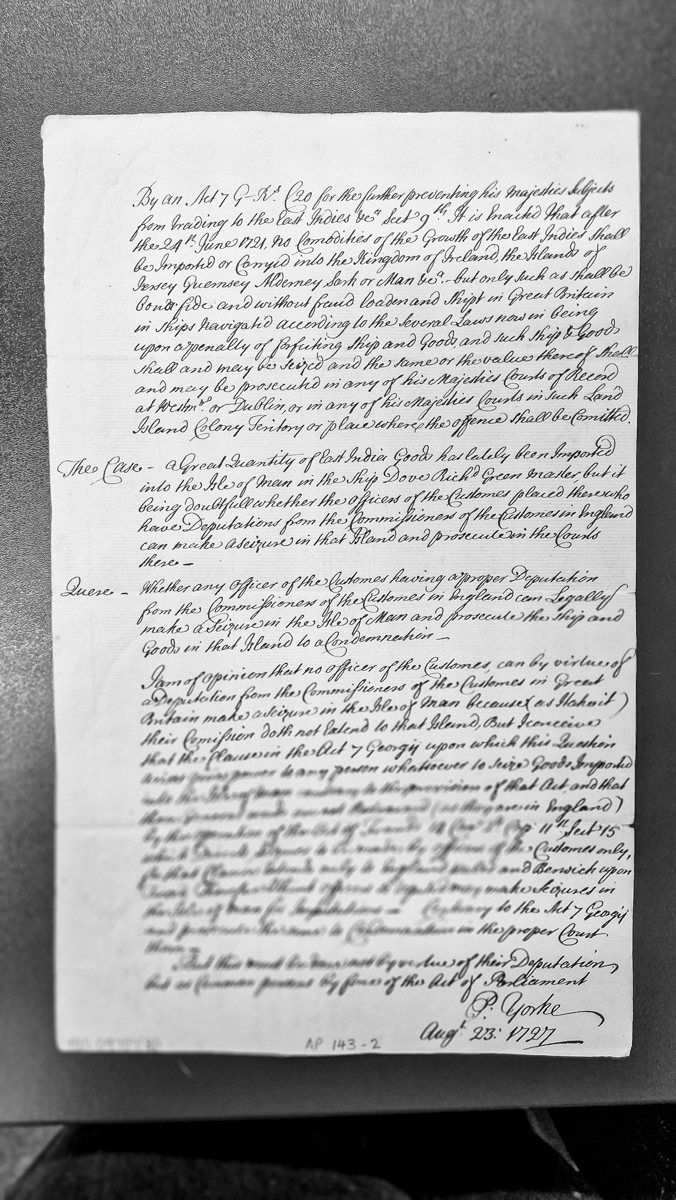 By an Act 7 G– Rs. C20 for the further preventing his Majesties Subjects
from trading to the East Indies &ca. Sect 9th. It is Enacted That after
the 24th. June 1721, no Comodities of the Growth of the East Indies shall
be Imported or Carryed into the Kingdom of Ireland, the Islands of
Jersey Guernsey Alderney Sark or Man &ca.– but only such as shall be
bona fide and without fraud loaden and Shipt in Great Britain
in Ships Navigated according to the Several Laws now in being
upon a penalty of forfeiting Ship and Goods, and such Ship & Goods
shall and may be Seized and the same or the value thereof Shall
and may be prosecuted in any of his Majesties Courts of Record
at Westmr. or Dublin, or in any of his Majesties Courts in such Land
Island Colony Teritory or place where the offence shall be Comitted.
The Case – a Great Quantity of East Indies Goods has lately been Imported
into the Isle of Man in the Ship Dove Richd. Green master, but it
being doubtfull whether the officers of the Customes placed there who
have Deputations from the Commissioners of the Customes in England
can make a Seizure in that Island and prosecute in the Courts
there –
Quere – Whether any Officer of the Customes having a proper Deputation
from the Commissioners of the Customes in England can Legally
make a Seizure in the Isle of Man and prosecute the Ship and
Goods in that Island to a Condemnation –
I am of opinion that no officer of the Customes, can by virtue of
a Deputation from the Commissioners of the Customes in Great
Britain make a Seizure in the Isle of Man because (as I take it)
their Comission doth not Extend to that Island, But I conceive
that the Clause in the Act 7 Georgij upon which this Question
arises gives power to any person whatsoever to Seize Goods Imported
into the Isle of Man contrary to the provision of that Act, and that
(as they are in England)
by the operation of the Act of 11th. Sect 15
by officers of the Customes only,
and Berwick upon
Tweed make Seizures in
the Isle of Man for Importations – Contrary to the Act 7 Georgij
and prosecute the same to Condemnation in the proper Court
there –
But this must be done not by virtue of their Deputation,
but as Common persons by force of the Act of Parliament
P. Yorke
Augt. 23: 1727
AP 143-2